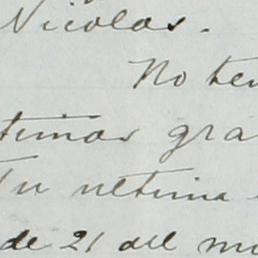 Nicolas.
No ten
timas gra
Tu ultima
de 21 del m